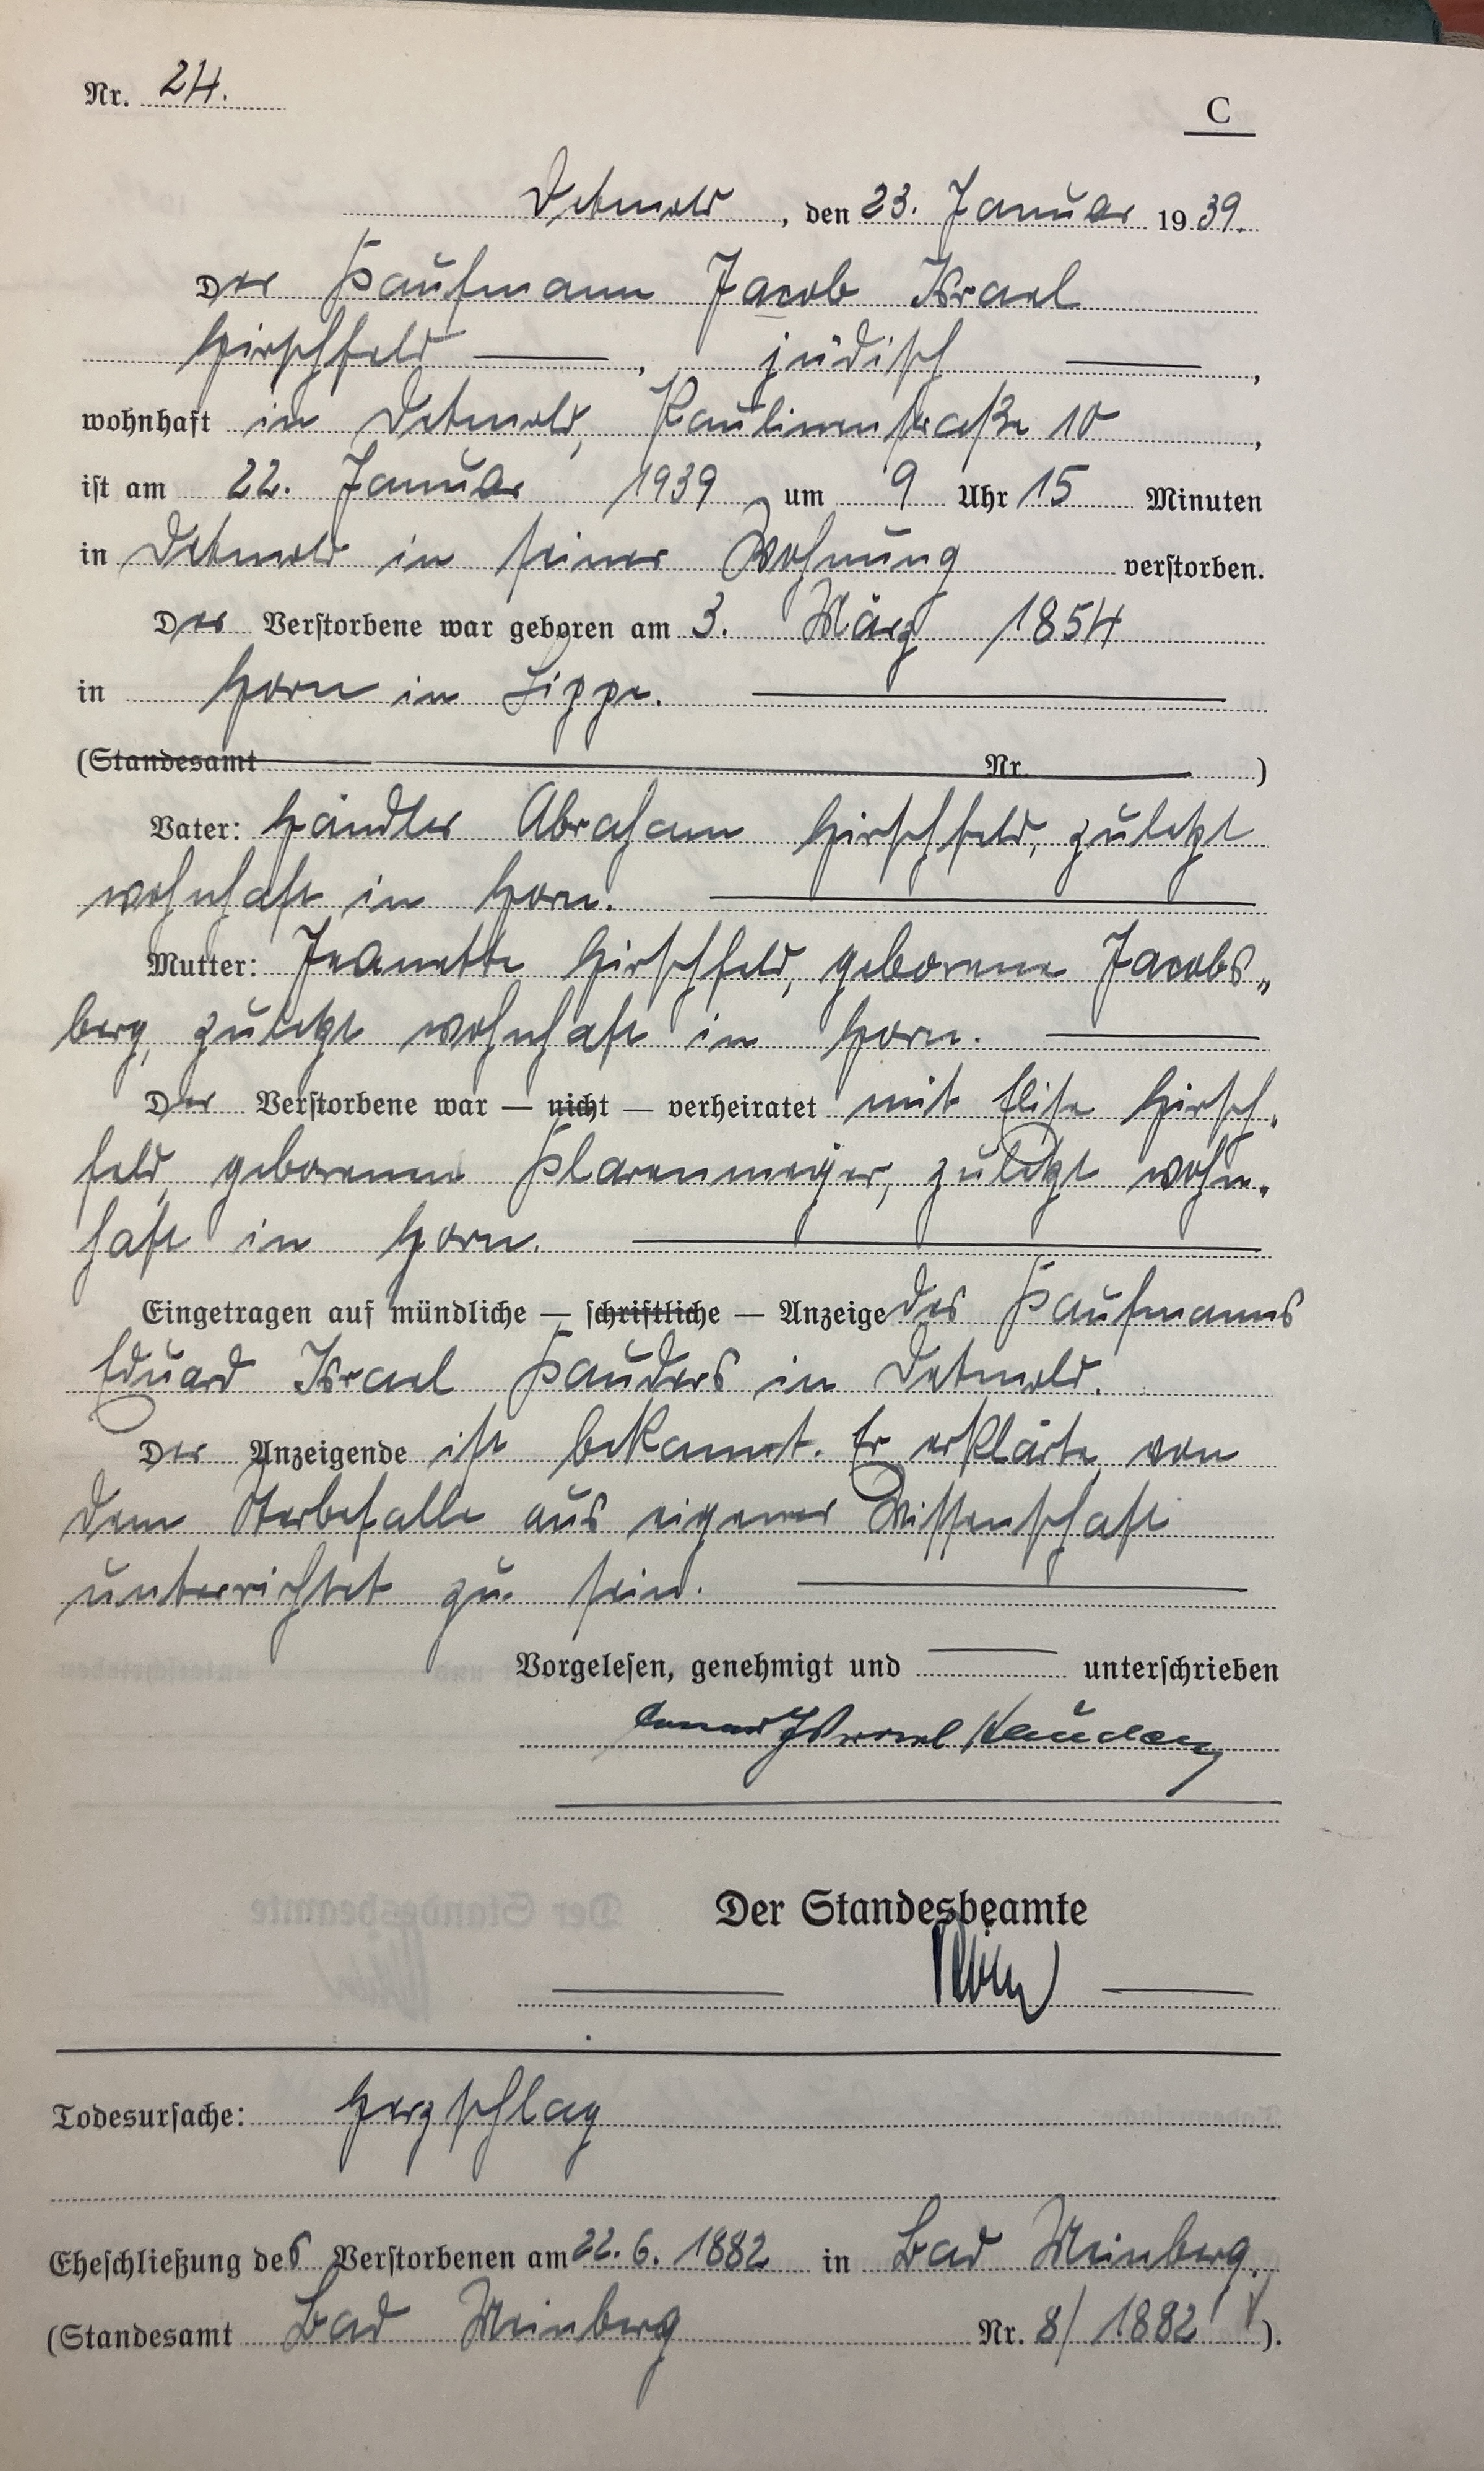 Nr. 24.
C
Detmold, den 23. Januar 1939.
Der Kaufmann Jacob Israel
Hirschfeld, jüdisch,
wohnhaft in Detmold, Paulinenstraße 10,
ist am 22. Januar 1939 um 9 Uhr 15 Minuten
in Detmold in seiner Wohnung verstorben.
Der Verstorbene war geboren am 3. März 1854
in Horn in Lippe.
(Standesamt Nr. )
Vater: Händler Abraham Hirschfeld, zuletzt
wohnhaft in Horn.
Mutter: Jeanette Hirschfeld, geborene Jacobs„
berg, zuletzt wohnhaft in Horn.
Der Verstorbene war — nicht — verheiratet mit Elise Hirsch-
feld, geborenen Plarenmeyer, zuletzt wohn-
haft in Horn.
Eingetragen auf mündliche — schriftliche — Anzeige des Kaufmanns
Eduard Israel Kauders in Detmold.
Der Anzeigende ist bekannt. Er erklärte, von
dem Sterbefalle aus eigener Wissenschaft
unterrichtet zu sein.
Vorgelesen, genehmigt und unterschrieben
Israel Kauders
Der Standesbeamte
Todesursache: Herzschlag
Eheschließung des Verstorbenen am 22. 6. 1882 in Bad Meinberg.
(Standesamt Bad Meinberg Nr. 8/1882).